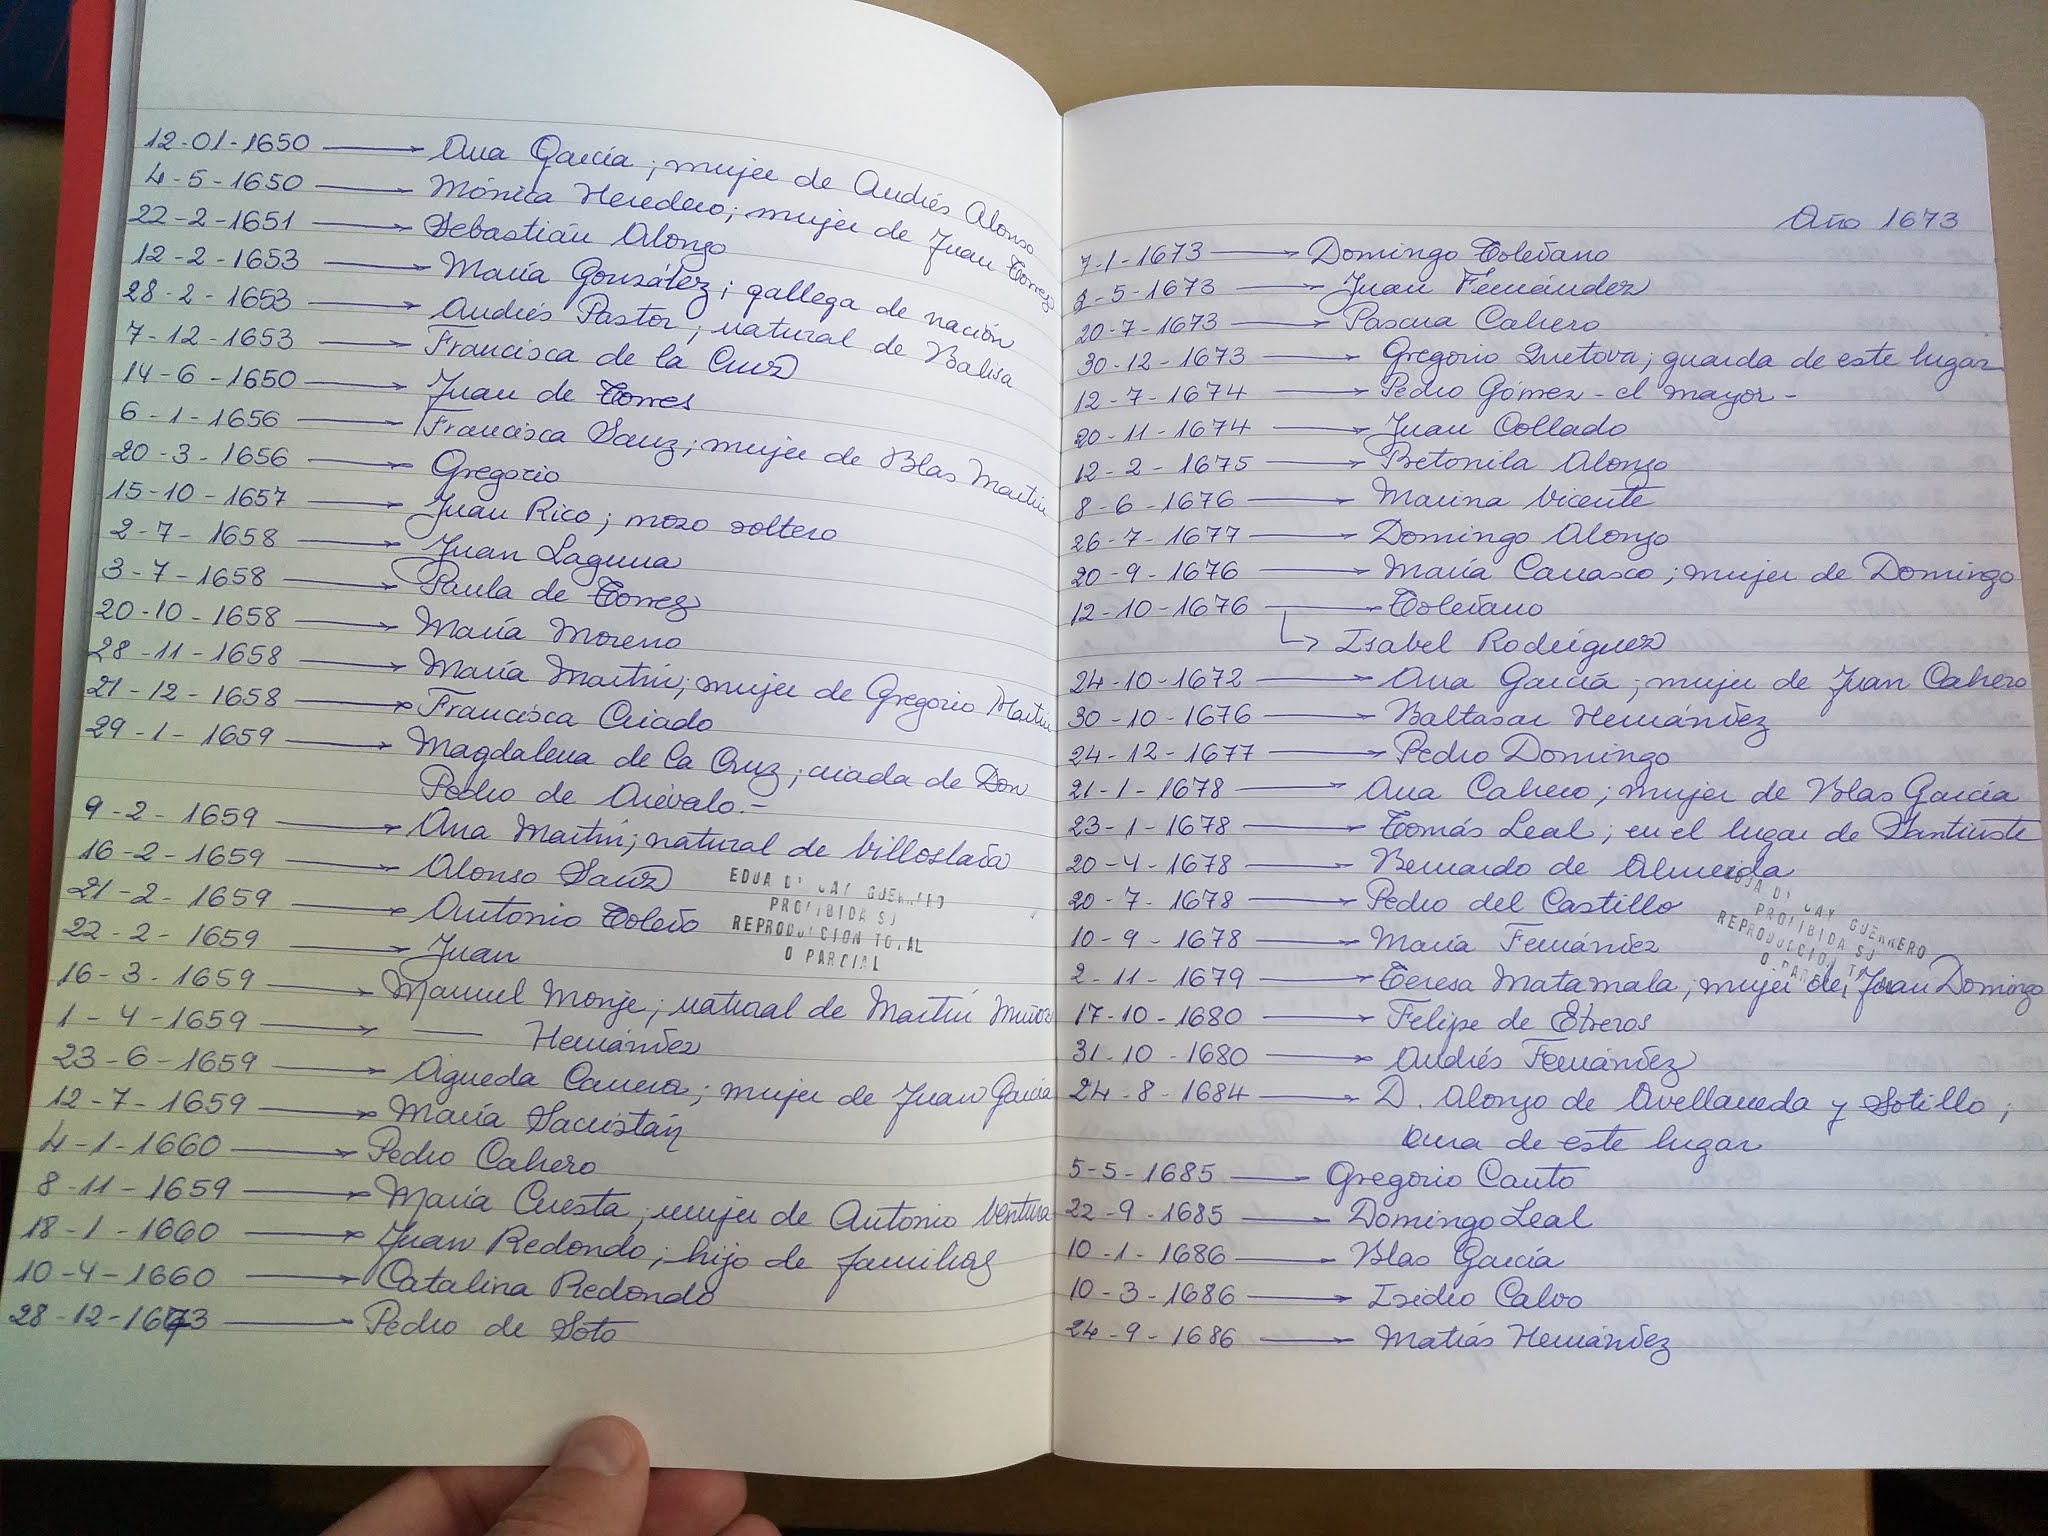 12-01-1650 → Ana García; mujer de Andrés Alonso
4-5-1650 → Mónica Heredero; mujer de Juan Torres
22-2-1651 → Sebastián Alonso
12-2-1653 → María González; gallega de nación
28-2-1653 → Andrés Pastor; natural de Balisa
7-12-1653 → Francisca de la Cruz
14-6-1650 → Juan de Torres
6-1-1656 → Francisca Sanz; mujer de Blas Martín
20-3-1656 → Gregorio
15-10-1657 → Juan Rico; mozo soltero
2-7-1658 → Juan Laguna
3-7-1658 → Paula de Torrez
20-10-1658 → María Moreno
28-11-1658 → María Martín; mujer de Gregorio Martín
21-12-1658 → Francisca Criado
29-1-1659 → Magdalena de la Cruz; criada de Don
Pedro de Arévalo.=
9-2-1659 → Ana Martín; natural de Villoslada
16-2-1659 → Alonso Sanz
21-2-1659 → Antonio Toledo
22-2-1659 → Juan
16-3-1659 → Manuel Monje; natural de Martín Muñoz
1-4-1659 → — Hernández
23-6-1659 → Agueda Carrera; mujer de Juan García
12-7-1659 → María Sacristán
4-1-1660 → Pedro Calvero
8-11-1659 → María Cuesta; mujer de Antonio Ventura
18-1-1660 → Juan Redondo; hijo de familias
10-4-1660 → Catalina Redondo
28-12-1673 → Pedro de Soto
EDUA DI GAY GUERRERO
PROHIBIDA SU
REPRODUCCION TOTAL
O PARCIAL
Año 1673
7-1-1673 → Domingo Toledano
3-5-1673 → Juan Fernández
20-7-1673 → Pascua Calvero
30-12-1673 → Gregorio; guarda de este lugar
12-7-1674 → Pedro Gómez - el mayor -
20-11-1674 → Juan Collado
12-2-1675 → Petonila Alonzo
8-6-1676 → Marina Vicente
26-7-1677 → Domingo Alonzo
20-9-1676 → María Carrasco; mujer de Domingo
12-10-1676 → Toledano
↳ Isabel Rodríguez
24-10-1672 → Ana García; mujer de Juan Calvero
30-10-1676 → Baltasar Hernández
24-12-1677 → Pedro Domingo
21-1-1678 → Ana Calvero; mujer de Blas García
23-1-1678 → Tomás Leal; en el lugar de Santiuste
20-4-1678 → Bernardo de Almeida
20-7-1678 → Pedro del Castillo
10-9-1678 → María Fernández
2-11-1679 → Teresa Matamala; mujer de Juan Domingo
17-10-1680 → Felipe de Etreros
31-10-1680 → Andrés Fernández
24-8-1684 → D. Alonzo de Avellaneda y Sotillo;
cura de este lugar
5-5-1685 → Gregorio Canto
22-9-1685 → Domingo Leal
10-1-1686 → Blas García
10-3-1686 → Isidro Calvo
24-9-1686 → Matías Hernández
EDUA DI GAY GUERRERO
PROHIBIDA SU
REPRODUCCION TOTAL
O PARCIAL